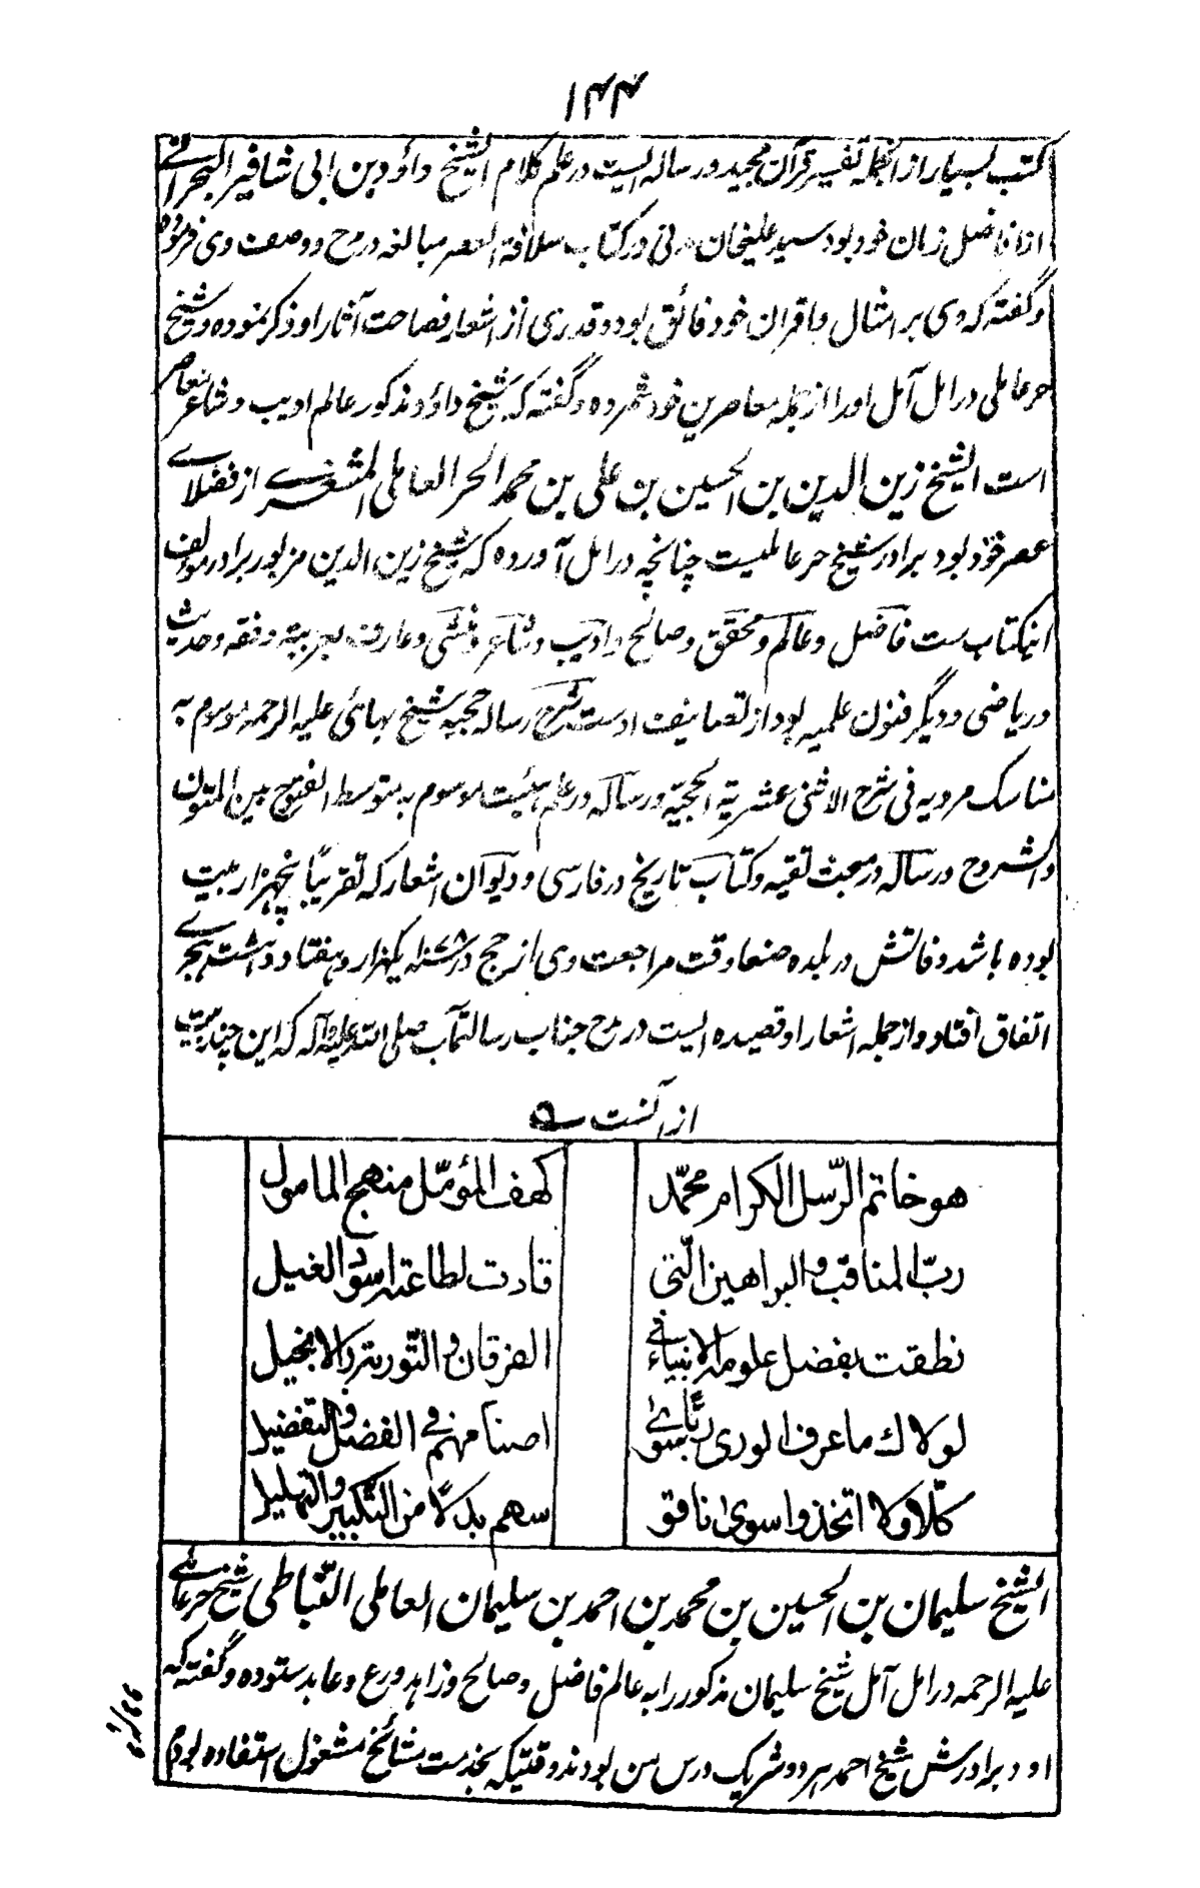 ۱۴۴
کتب بسیار از انجمله تفسیر قرآن مجید و رساله ایست در علم کلام الشیخ داؤد بن ابی شافیر البحرانی
از افاضل زمان خود بود سید علیخان مدنی در کتاب سلافة العصر مبالغه در مدح و وصف وی فرموده
و گفته که وی بر امثال و اقران خود فائق بوده و قدری از اشعار فصاحت آثار او ذکر نموده و شیخ
حر عاملی در امل آمل او را از جمله معاصرین خود شمرده و گفته که شیخ داؤد مذکور عالم ادیب و شاعر معاصر
است الشیخ زین الدین بن الحسین بن علی بن محمد الحر العاملی المشغری از فضلای
عصر خود بود برادر شیخ حر عاملیست چنانچه در امل آورده که شیخ زین الدین مزبور برادر مؤلف
اینکتاب ست فاضل و عالم و محقق و صالح و ادیب و شاعر و منشی و عارف بعربیه و فقه و حدیث
و ریاضی و دیگر فنون علمیه بود از تصانیف اوست شرح رساله حجیه شیخ بهائی علیه الرحمه موسوم به
مناسک مرویه فی شرح الاثنی عشریة الحجیة و رساله در علم هیئت موسوم به متوسط الفتوح بین المتون
والشروح و رساله در مبحث تقیه و کتاب تاریخ در فارسی و دیوان اشعار که تقریباً پنجهزار بیت
بوده باشد وفاتش در بلده صنعا وقت مراجعت وی از حج در ۱۰۷۸ یکهزار و هفتاد و هشت هجری
اتفاق افتاد و از جمله اشعار او قصیده ایست در مدح جناب رسالتمآب صلی الله علیه و آله که این چند بیت
از آنست
هو خاتم الرّسل الکرام محمّد کهف المؤمّل منهج المامول
ربّ المناقب و البراهین الّتی قادت لطاعته اسود الغیل
نطقت بفضل علومه الانبیاء فی الفرقان و التّوریة و الانجیل
لولاك ما عرف الوری ربّا سوی اصنامهم فی الفضل و التفضیل
کلّا ولا اتخذوا سوی ناقوسهم بدلا من التکبیر و التهلیل
الشیخ سلیمان بن الحسین بن محمد بن احمد بن سلیمان العاملی النّباطی شیخ حر عاملی
علیه الرحمه در امل آمل شیخ سلیمان مذکور را به عالم فاضل و صالح و زاهد ورع و عابد ستوده و گفته که
او و برادرش شیخ احمد هر دو شریک درس من بودند و قتیکه بخدمت مشائخ مشغول استفاده بودم